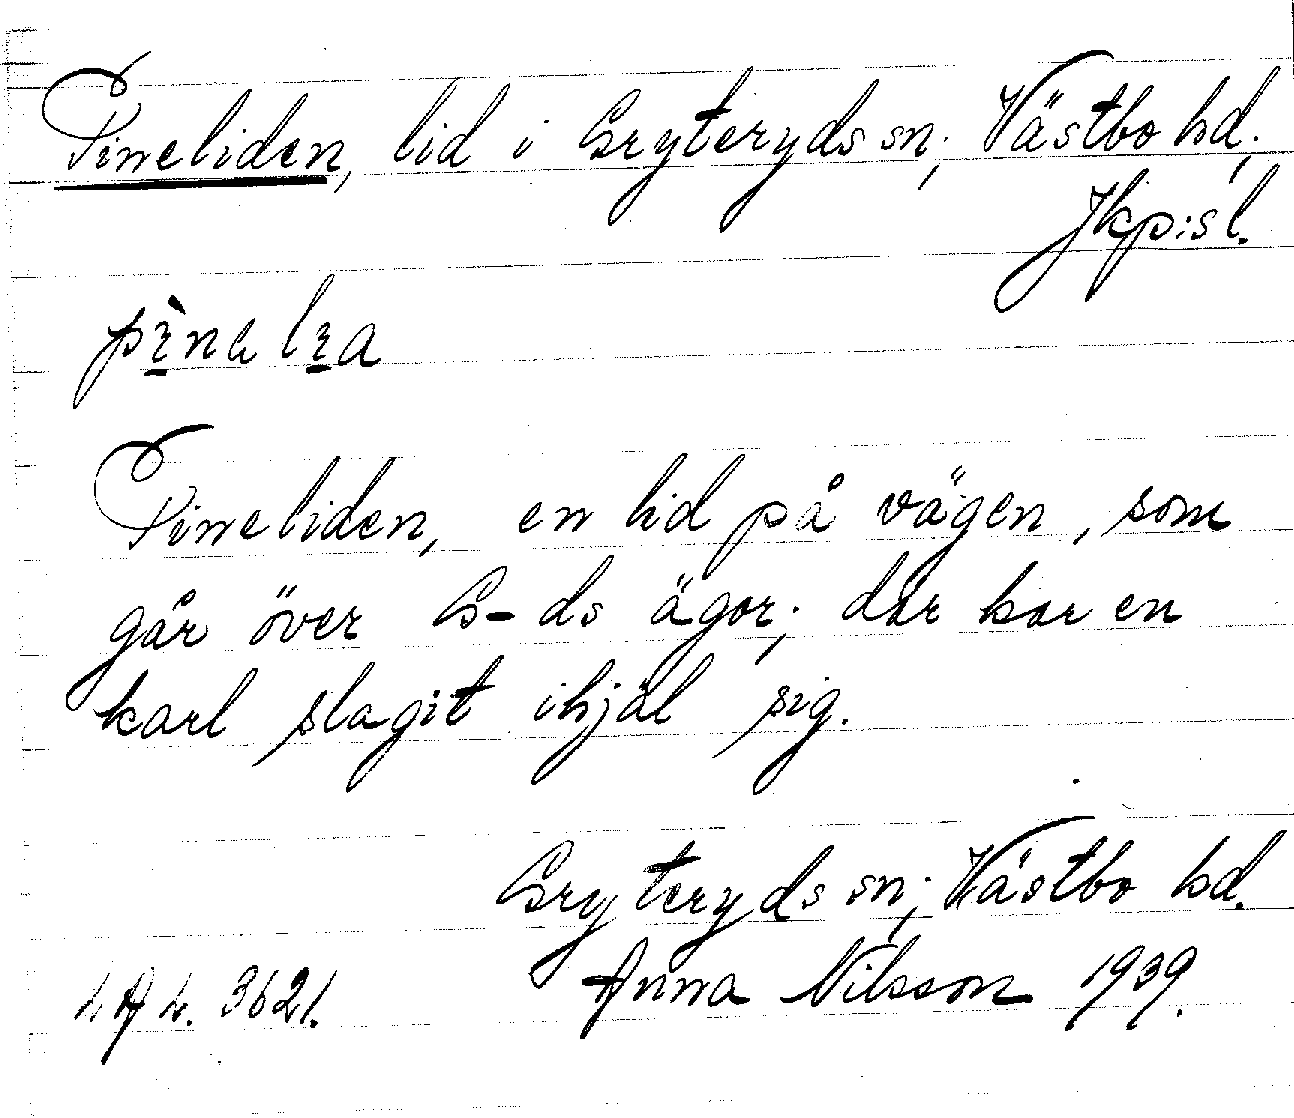 Pineliden, lid i Gryteryds sn; Västbo hd;
Jkp:sl.
Pineliden, en lid på vägen, som
går över G-ds ägor; där har en
karl slagit ihjäl sig.
Gryteryds sn; Västbo hd.
3621. Anna Nilsson 1939.